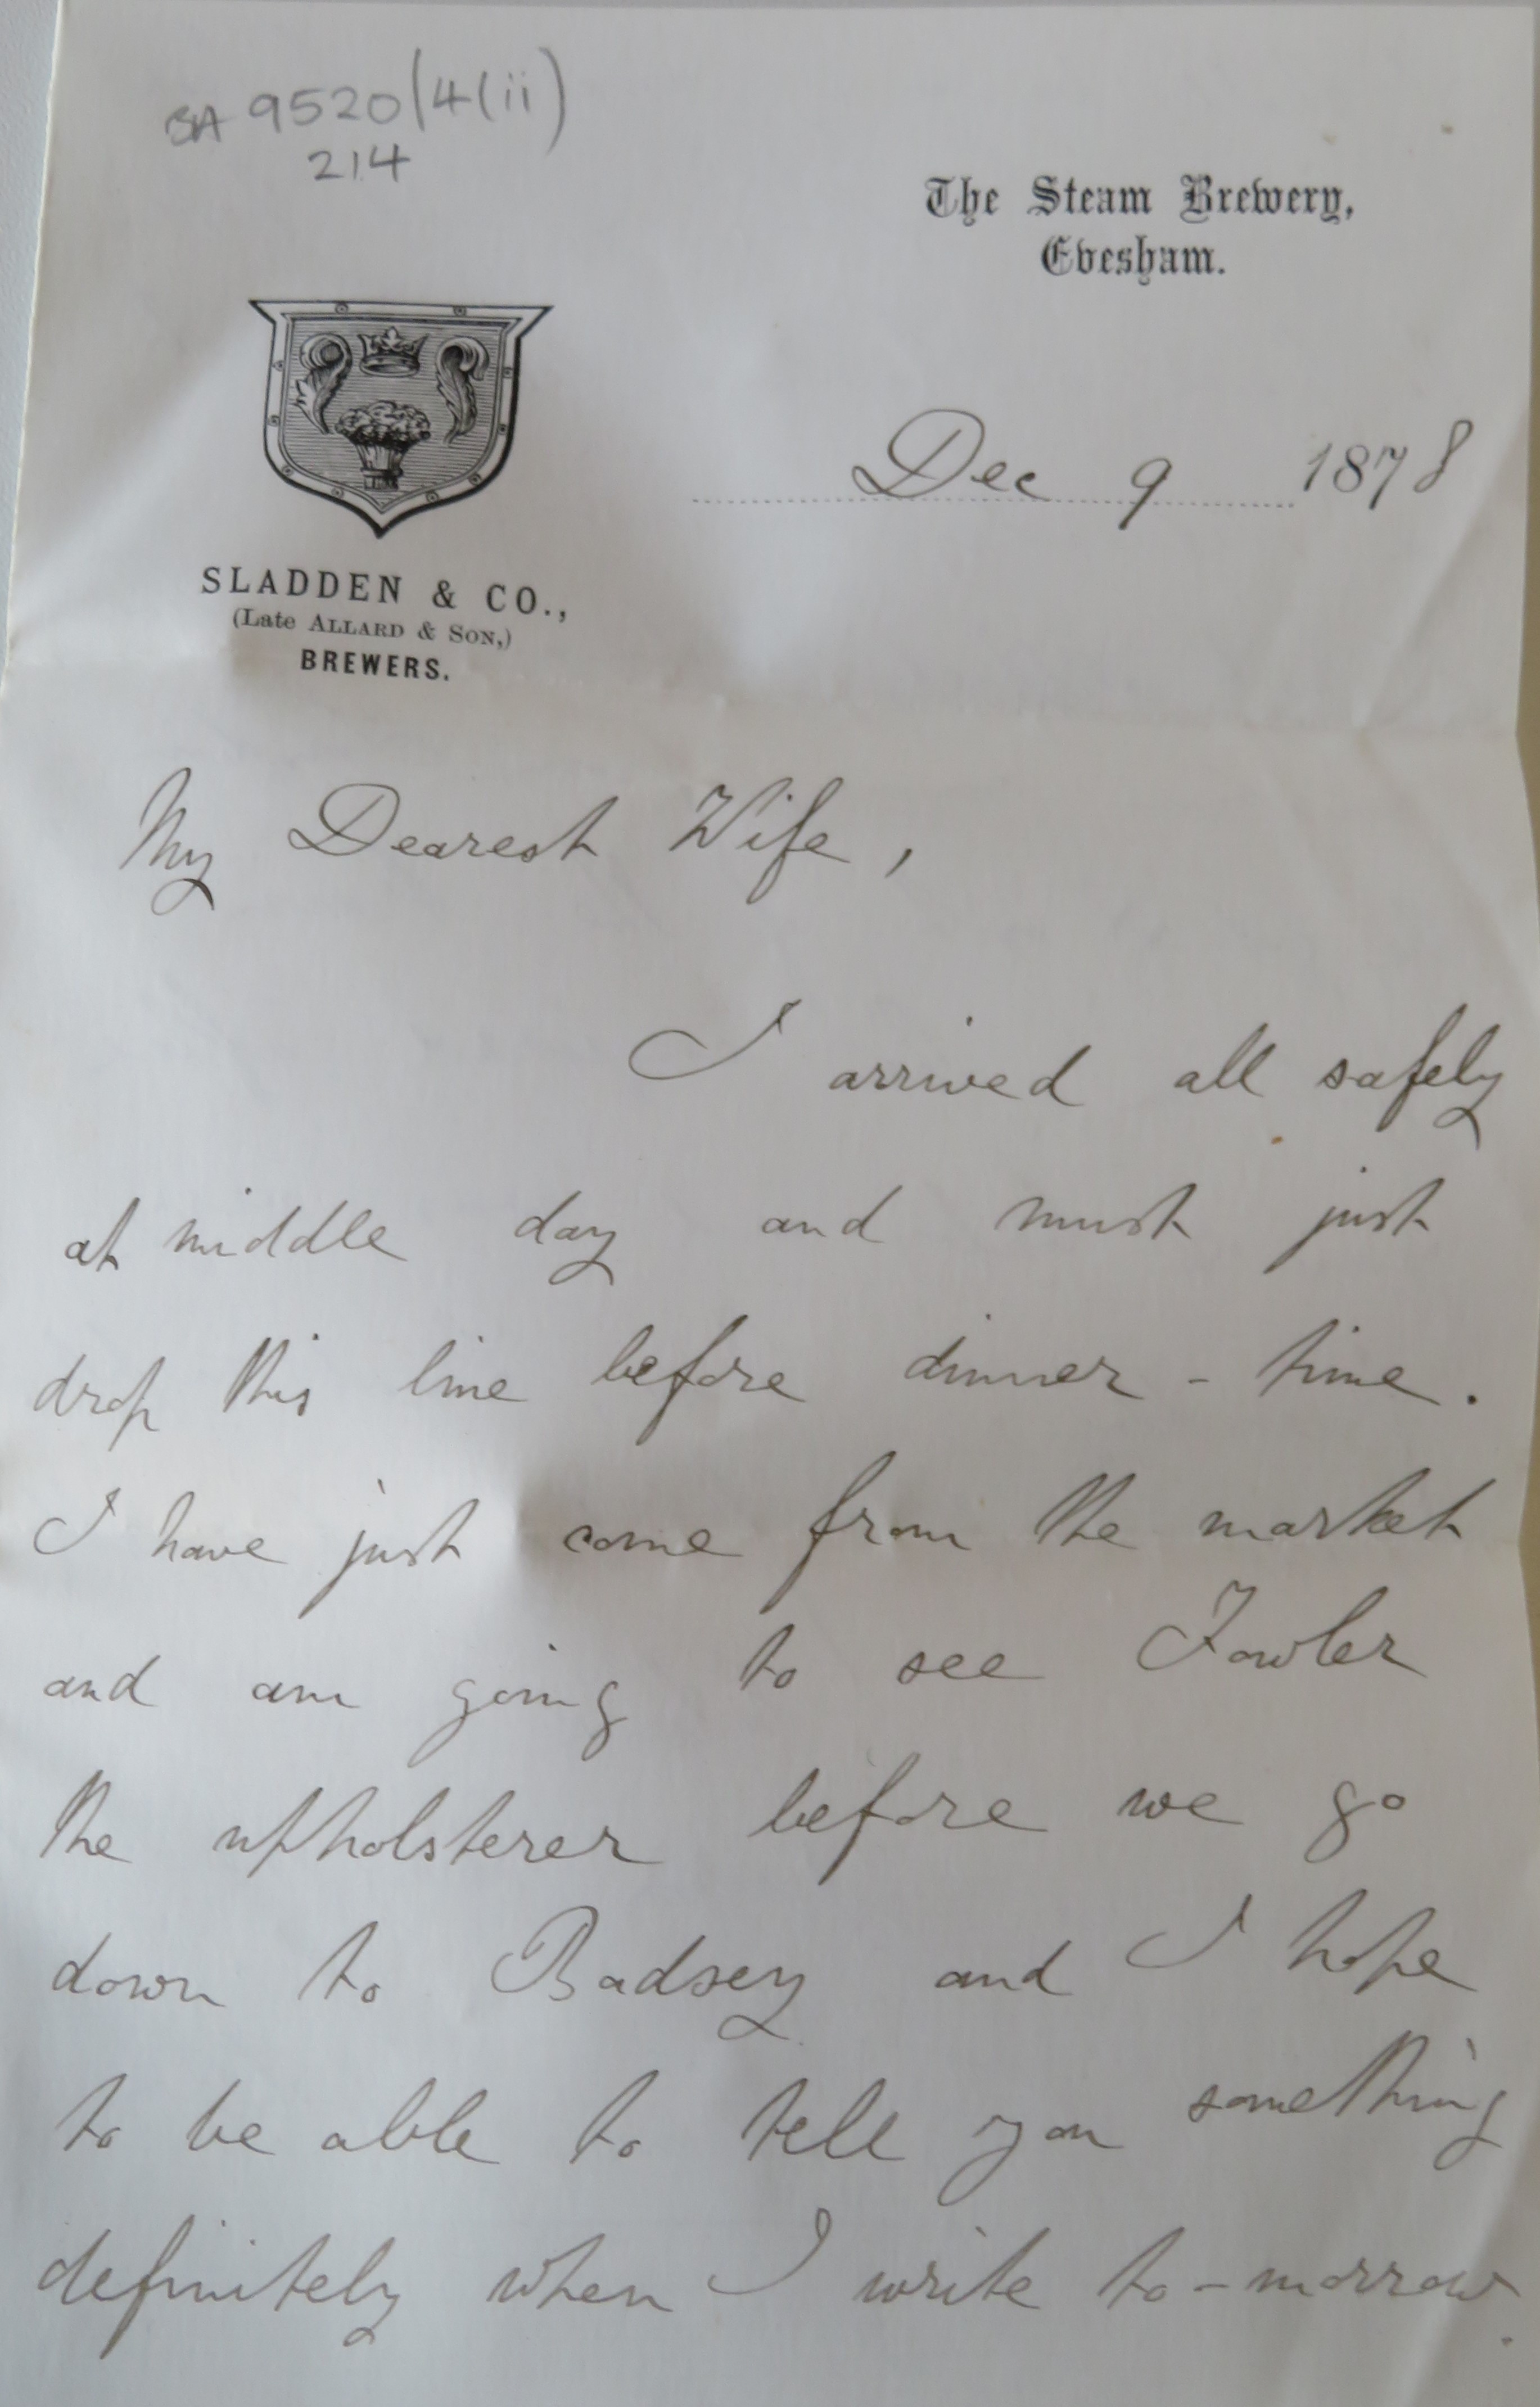 BA 9520/4(ii)
214
The Steam Brewery,
Evesham.
Dec 9 1878
SLADDEN & CO.,
(Late ALLARD & SON,)
BREWERS.
My Dearest Wife,
I arrived all safely
at middle day and must just
drop this line before dinner-time.
I have just come from the market
and am going to see Fowler
the upholsterer before we go
down to Badsey and I hope
to be able to tell you something
definitely when I write to-morrow.